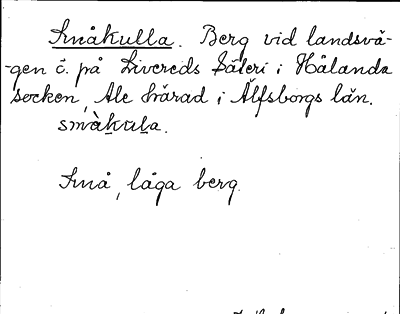 Småkulla. Berg vid landsvä-
-gen ö. på Livereds Säteri i Hålanda
socken, Ale härad i Älfsborgs län.
småkula.
Små, låga berg.